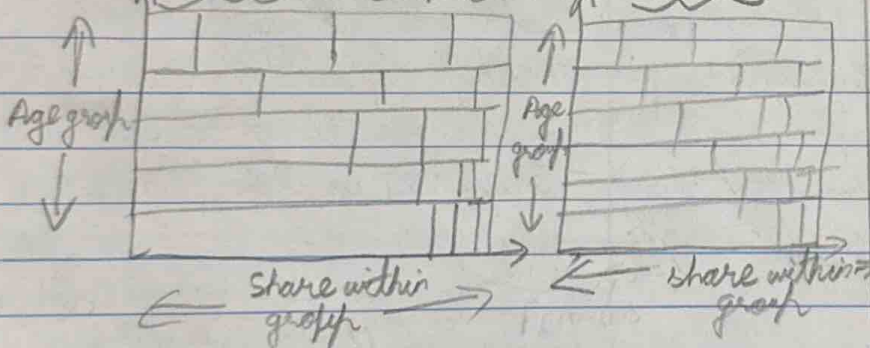 Age group
Share within
group
Age
group
share within
group